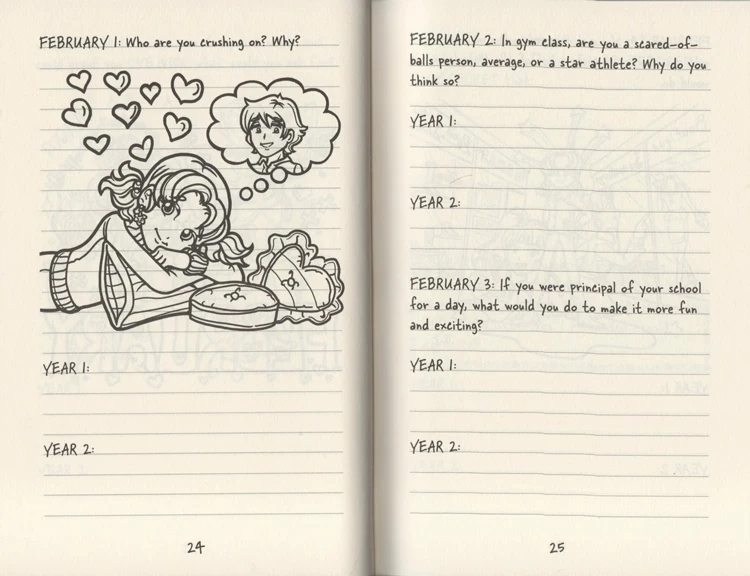 FEBRUARY 1: Who are you crushing on? Why?
YEAR 1:
YEAR 2:
24
FEBRUARY 2: In gym class, are you a scared-of-
balls person, average, or a star athlete? Why do you
think so?
YEAR 1:
YEAR 2:
FEBRUARY 3: If you were principal of your school
for a day, what would you do to make it more fun
and exciting?
YEAR 1:
YEAR 2:
25